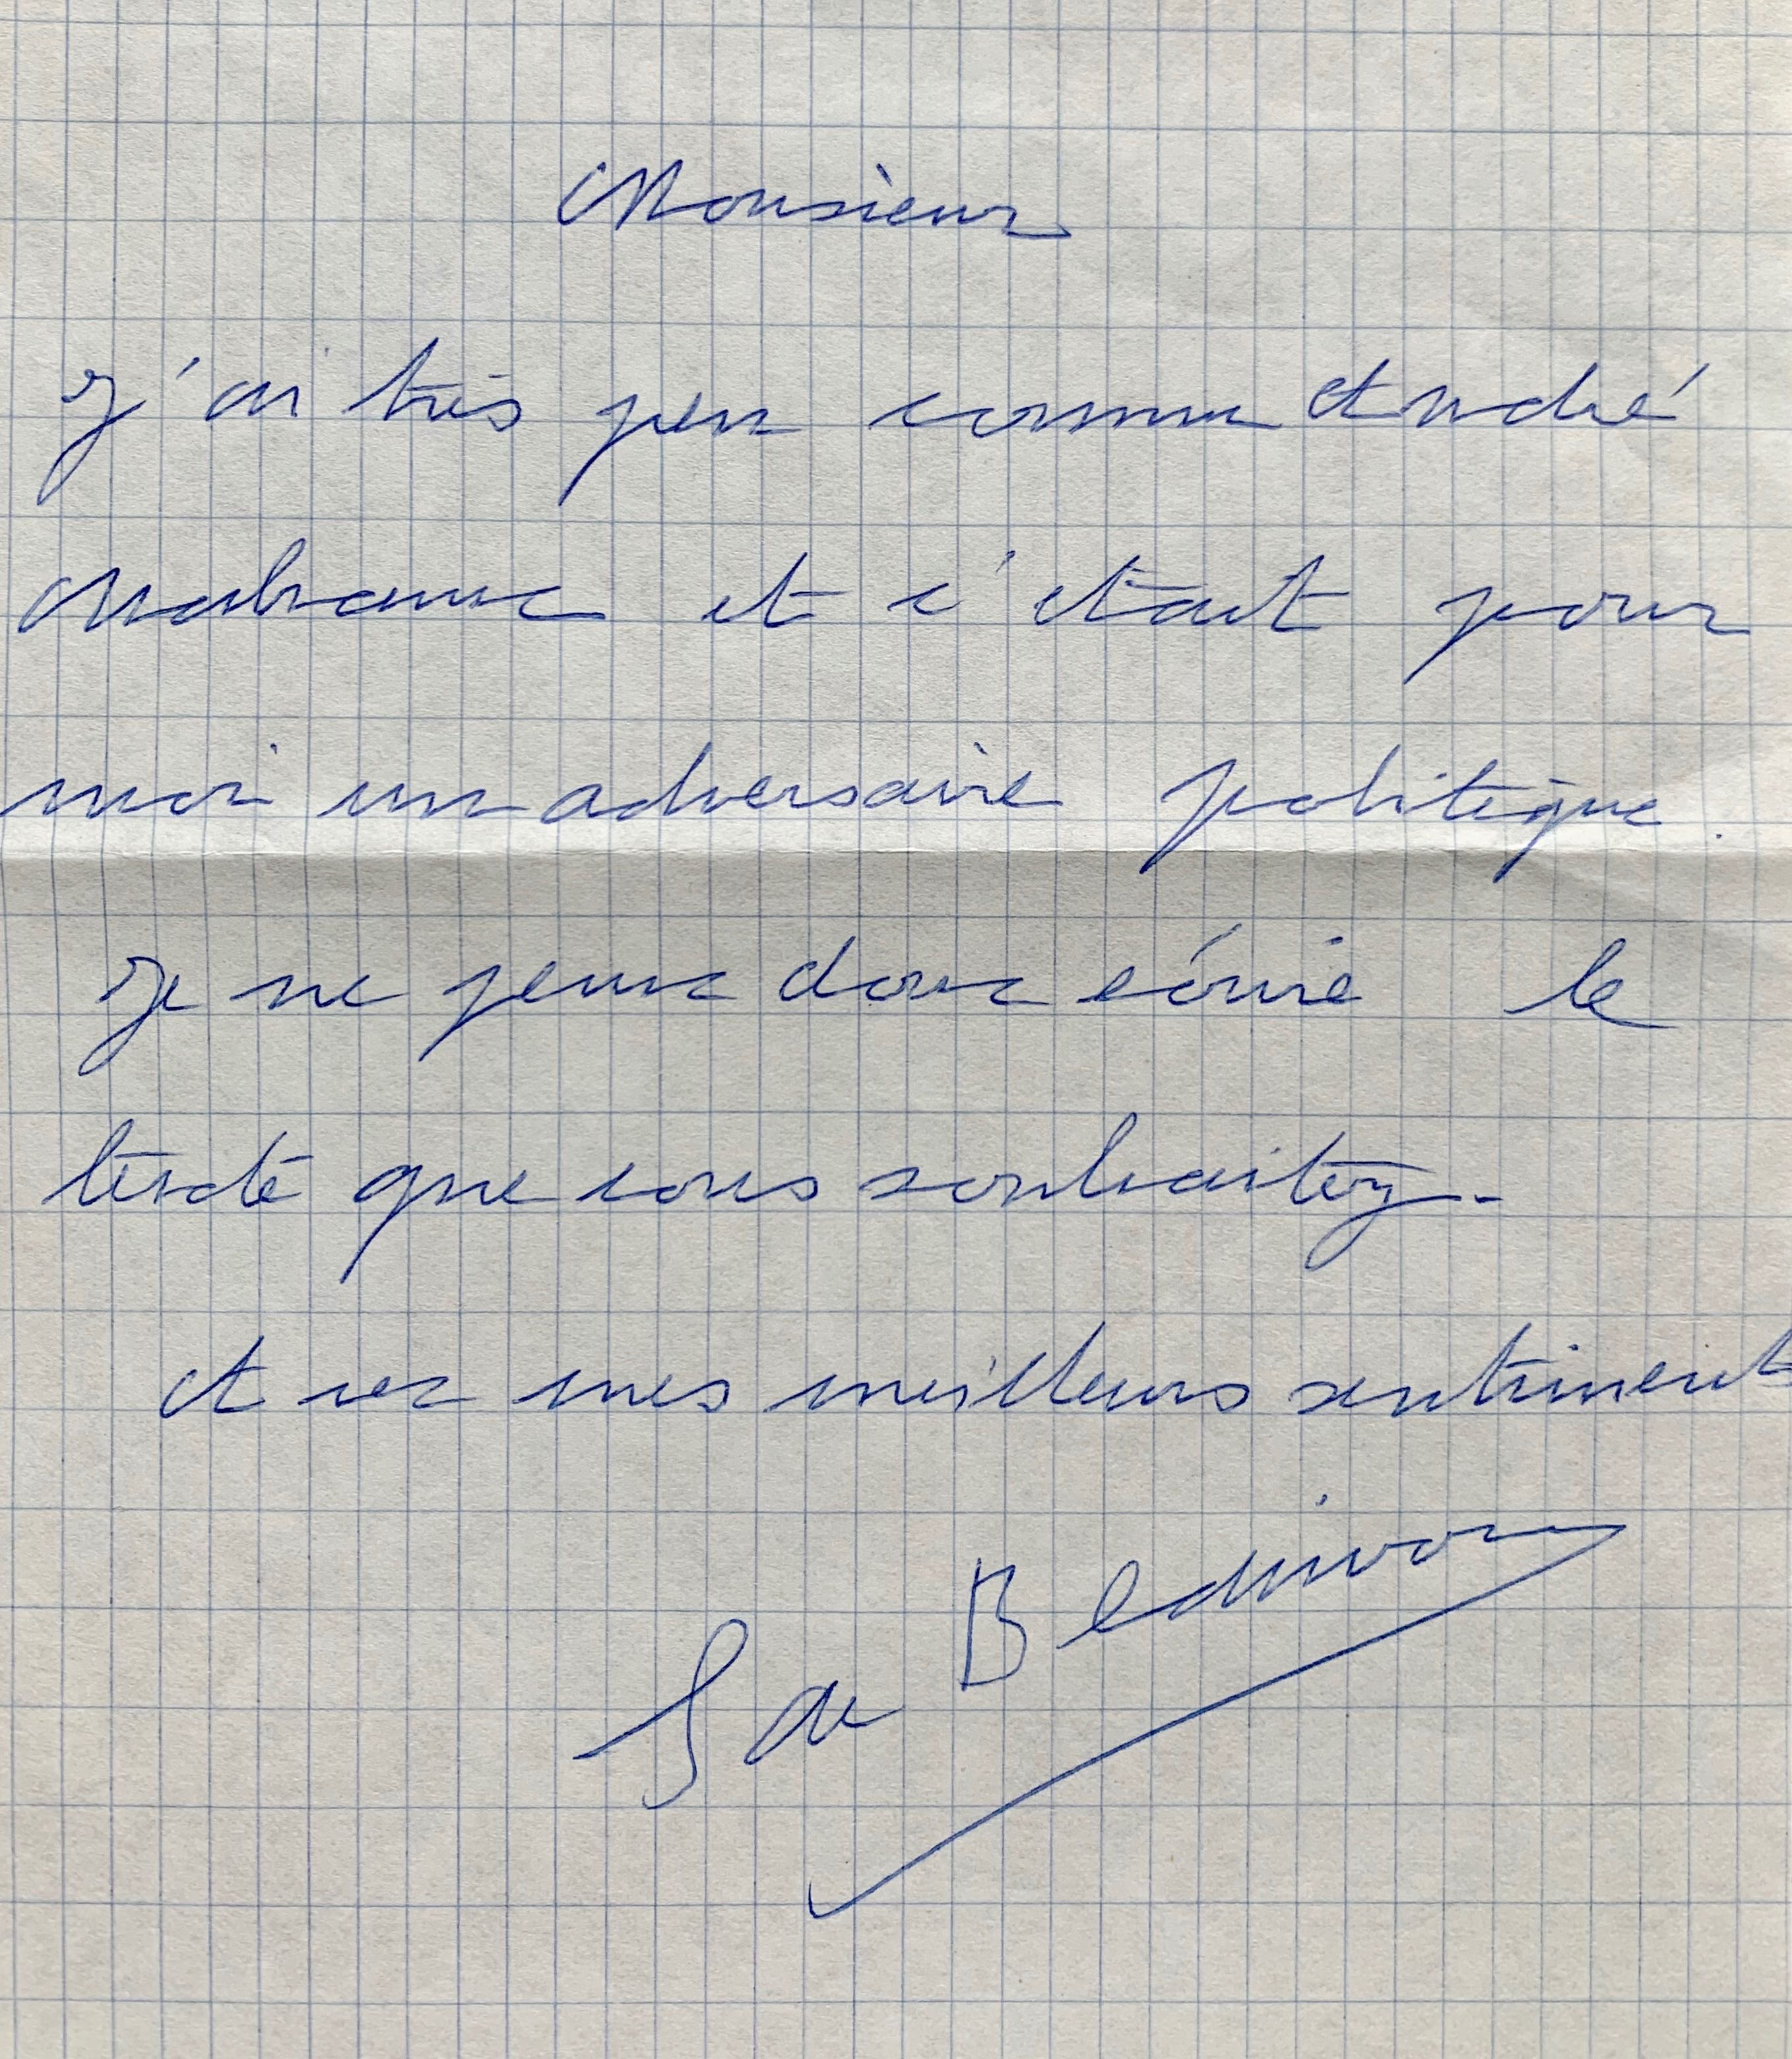 Monsieur
J'ai très peu connu André
Malraux et c'était pour
moi un adversaire politique.
Je ne peux donc écrire le
texte que vous souhaitez.
et vez mes meilleurs sentiments
S de Beauvoir